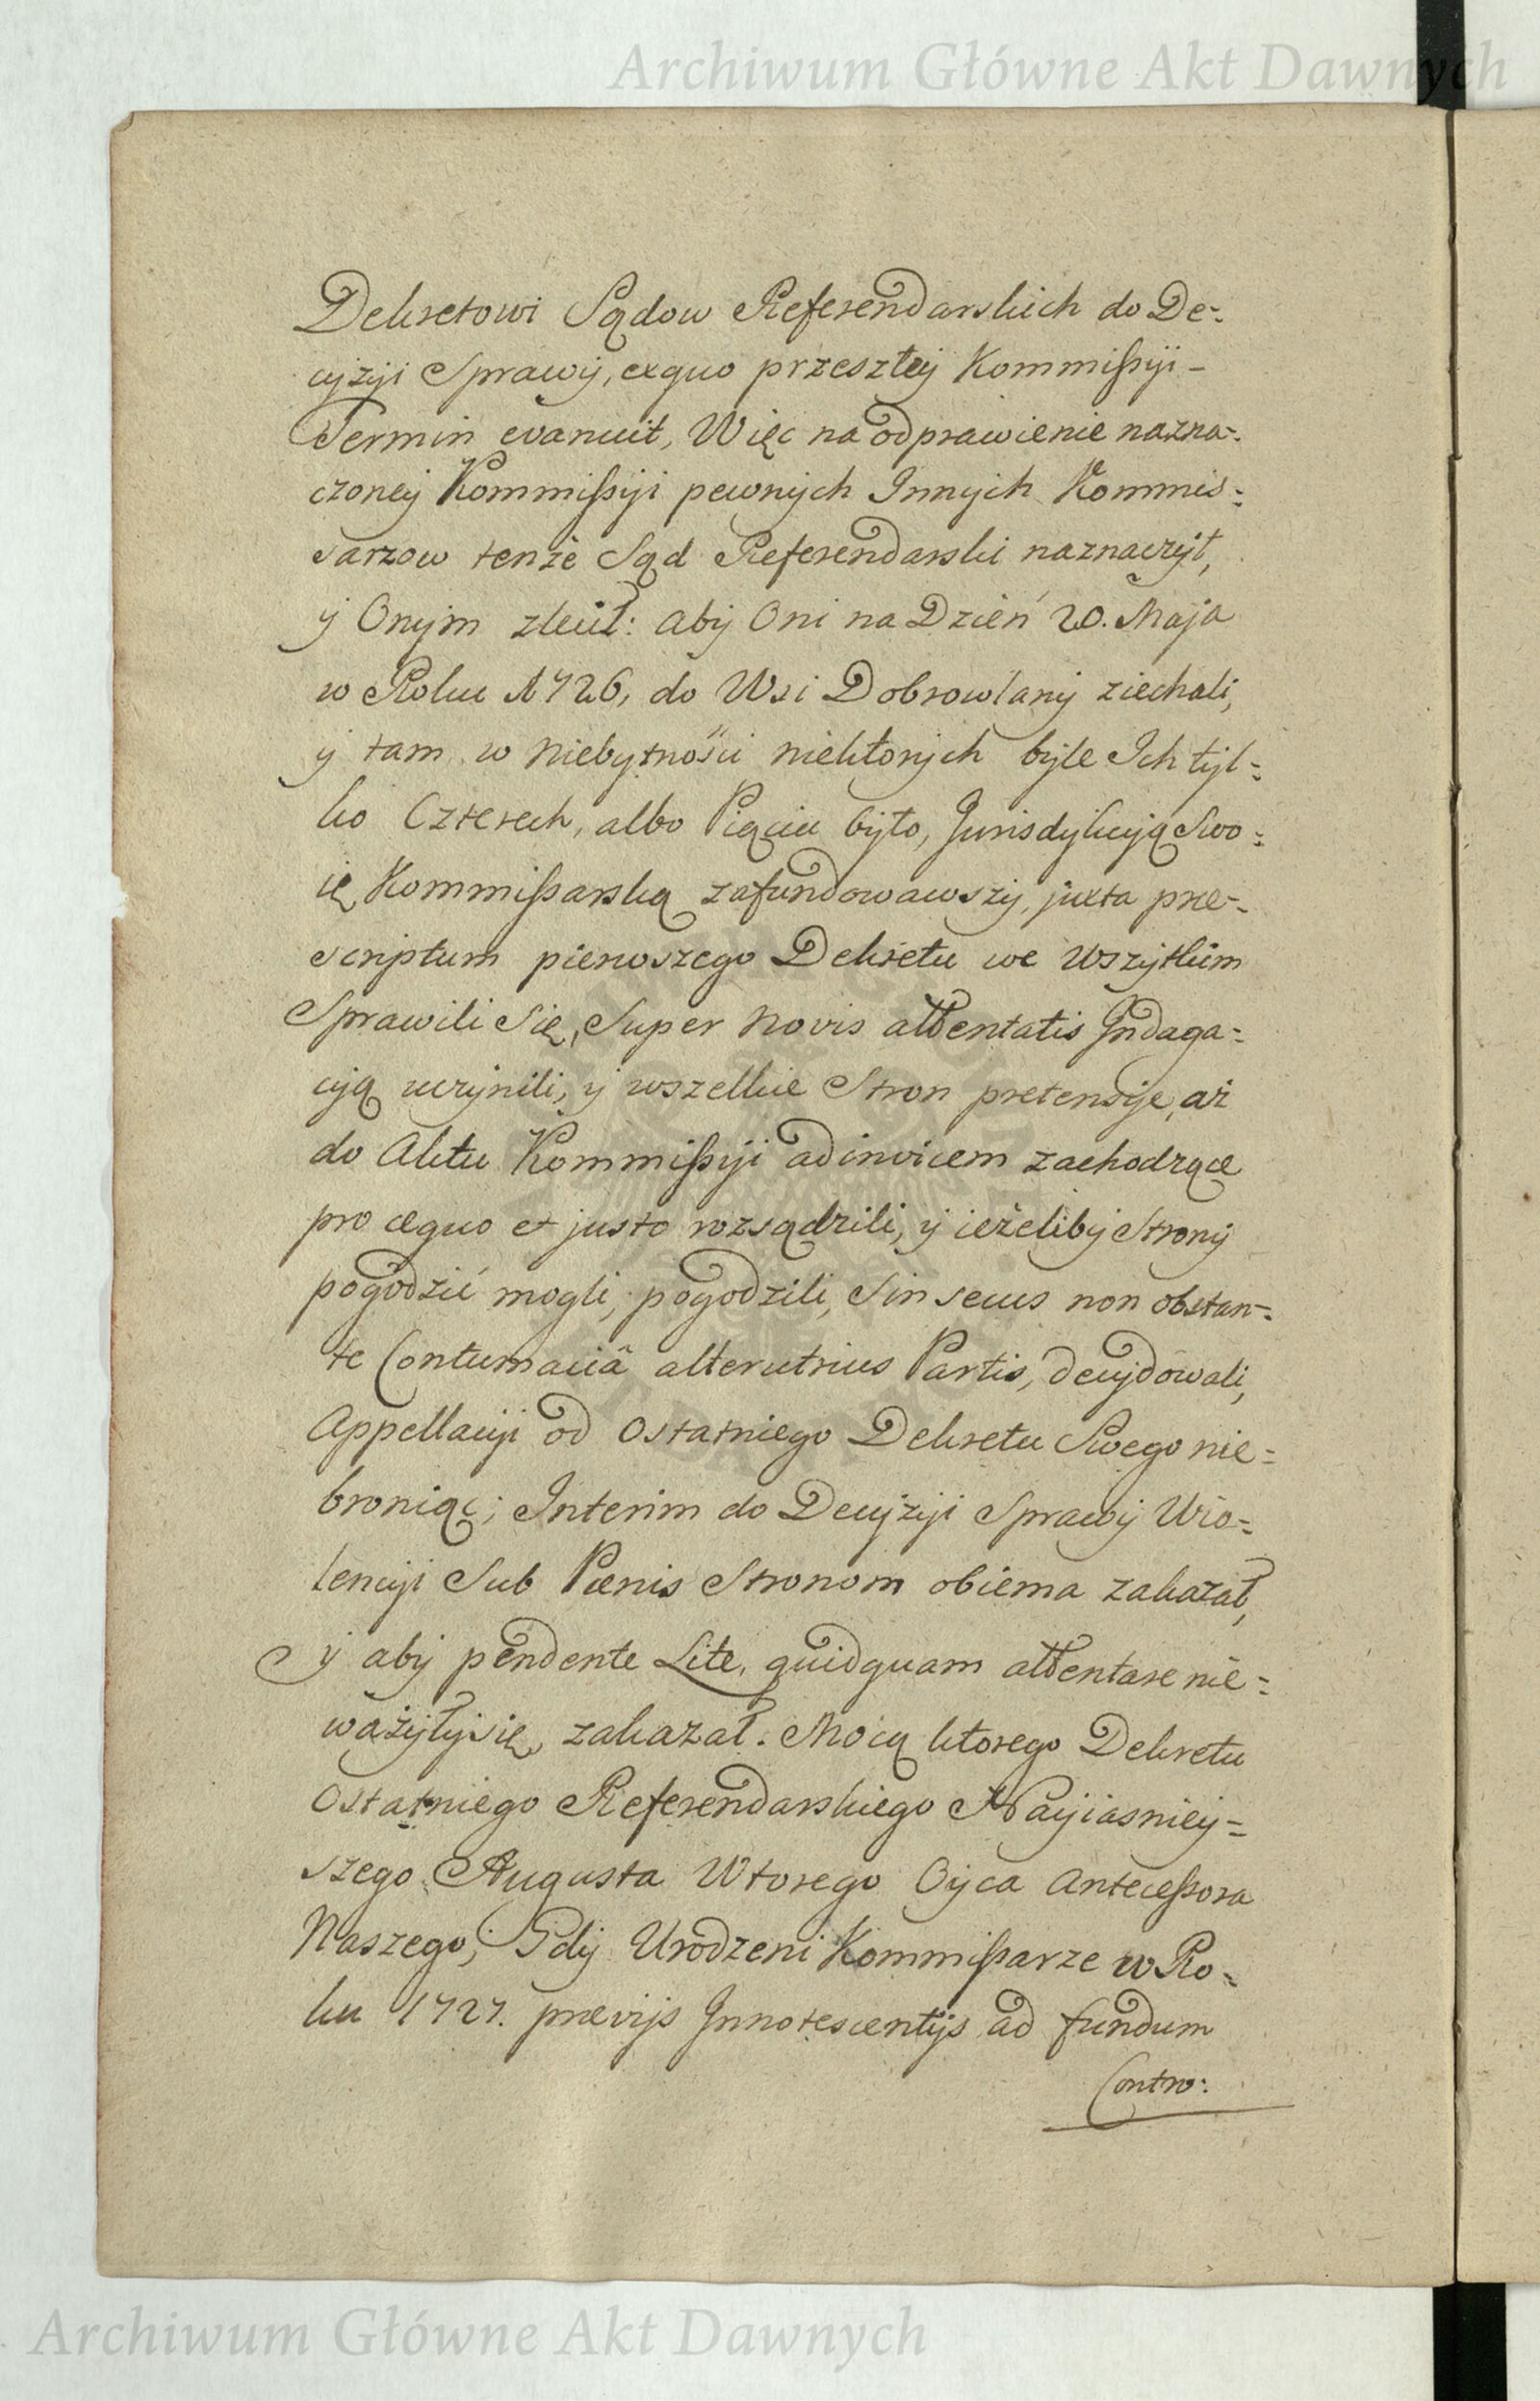 Archiwum Główne Akt Dawnych
Dekretowi Sądow Referendarskich do De-
cyzyi Sprawy, exquo przeszłey Kommissyi-
Termin evanuit, Więc na odprawienie nazna-
czoney Kommissyi pewnych Innych Kommis-
sarzow tenże Sąd Referendarski naznaczył,
y Onym zlecił: aby Oni na Dzień 20. Maja
w Roku 1726, do Wsi Dobrowlany ziechali,
y tam w niebytności niektorych byle Ich tyl-
ko Czterech, albo Piąciu było, Jurisdykcyą Swo-
ię Kommissarską zafundowawszy, juxta præ-
scriptum pierwszego Dekretu we wszytkim
Sprawili Się, Super novis attentatis Indaga-
cyą uczynili, y wszelkie Stron pretensye, aż
do Aktu Kommissyi adinvicem zachodzące
pro æquo et justo rozsądzili, y ieżeliby Strony
pogodzić mogli, pogodzili, Sin secus non obstan-
te Contumaciâ alterutrius Partis, decydowali,
Appellacyi od Ostatniego Dekretu Swego nie-
broniąc; Interim do Decyzyi Sprawy Wio-
lencyi Sub Pænis Stronom obiema zakazał,
y aby pendente Lite, quidquam attentare nie-
ważyły się, zakazał. Mocą ktorego Dekretu
Ostatniego Referendarskiego Nayiasniey-
szego Augusta Wtorego Oyca Antecessora
Naszego, Gdy Urodzeni Kommissarze w Ro-
ku 1727. prævijs Innotescentijs ad fundum
Contro:
Archiwum Główne Akt Dawnych